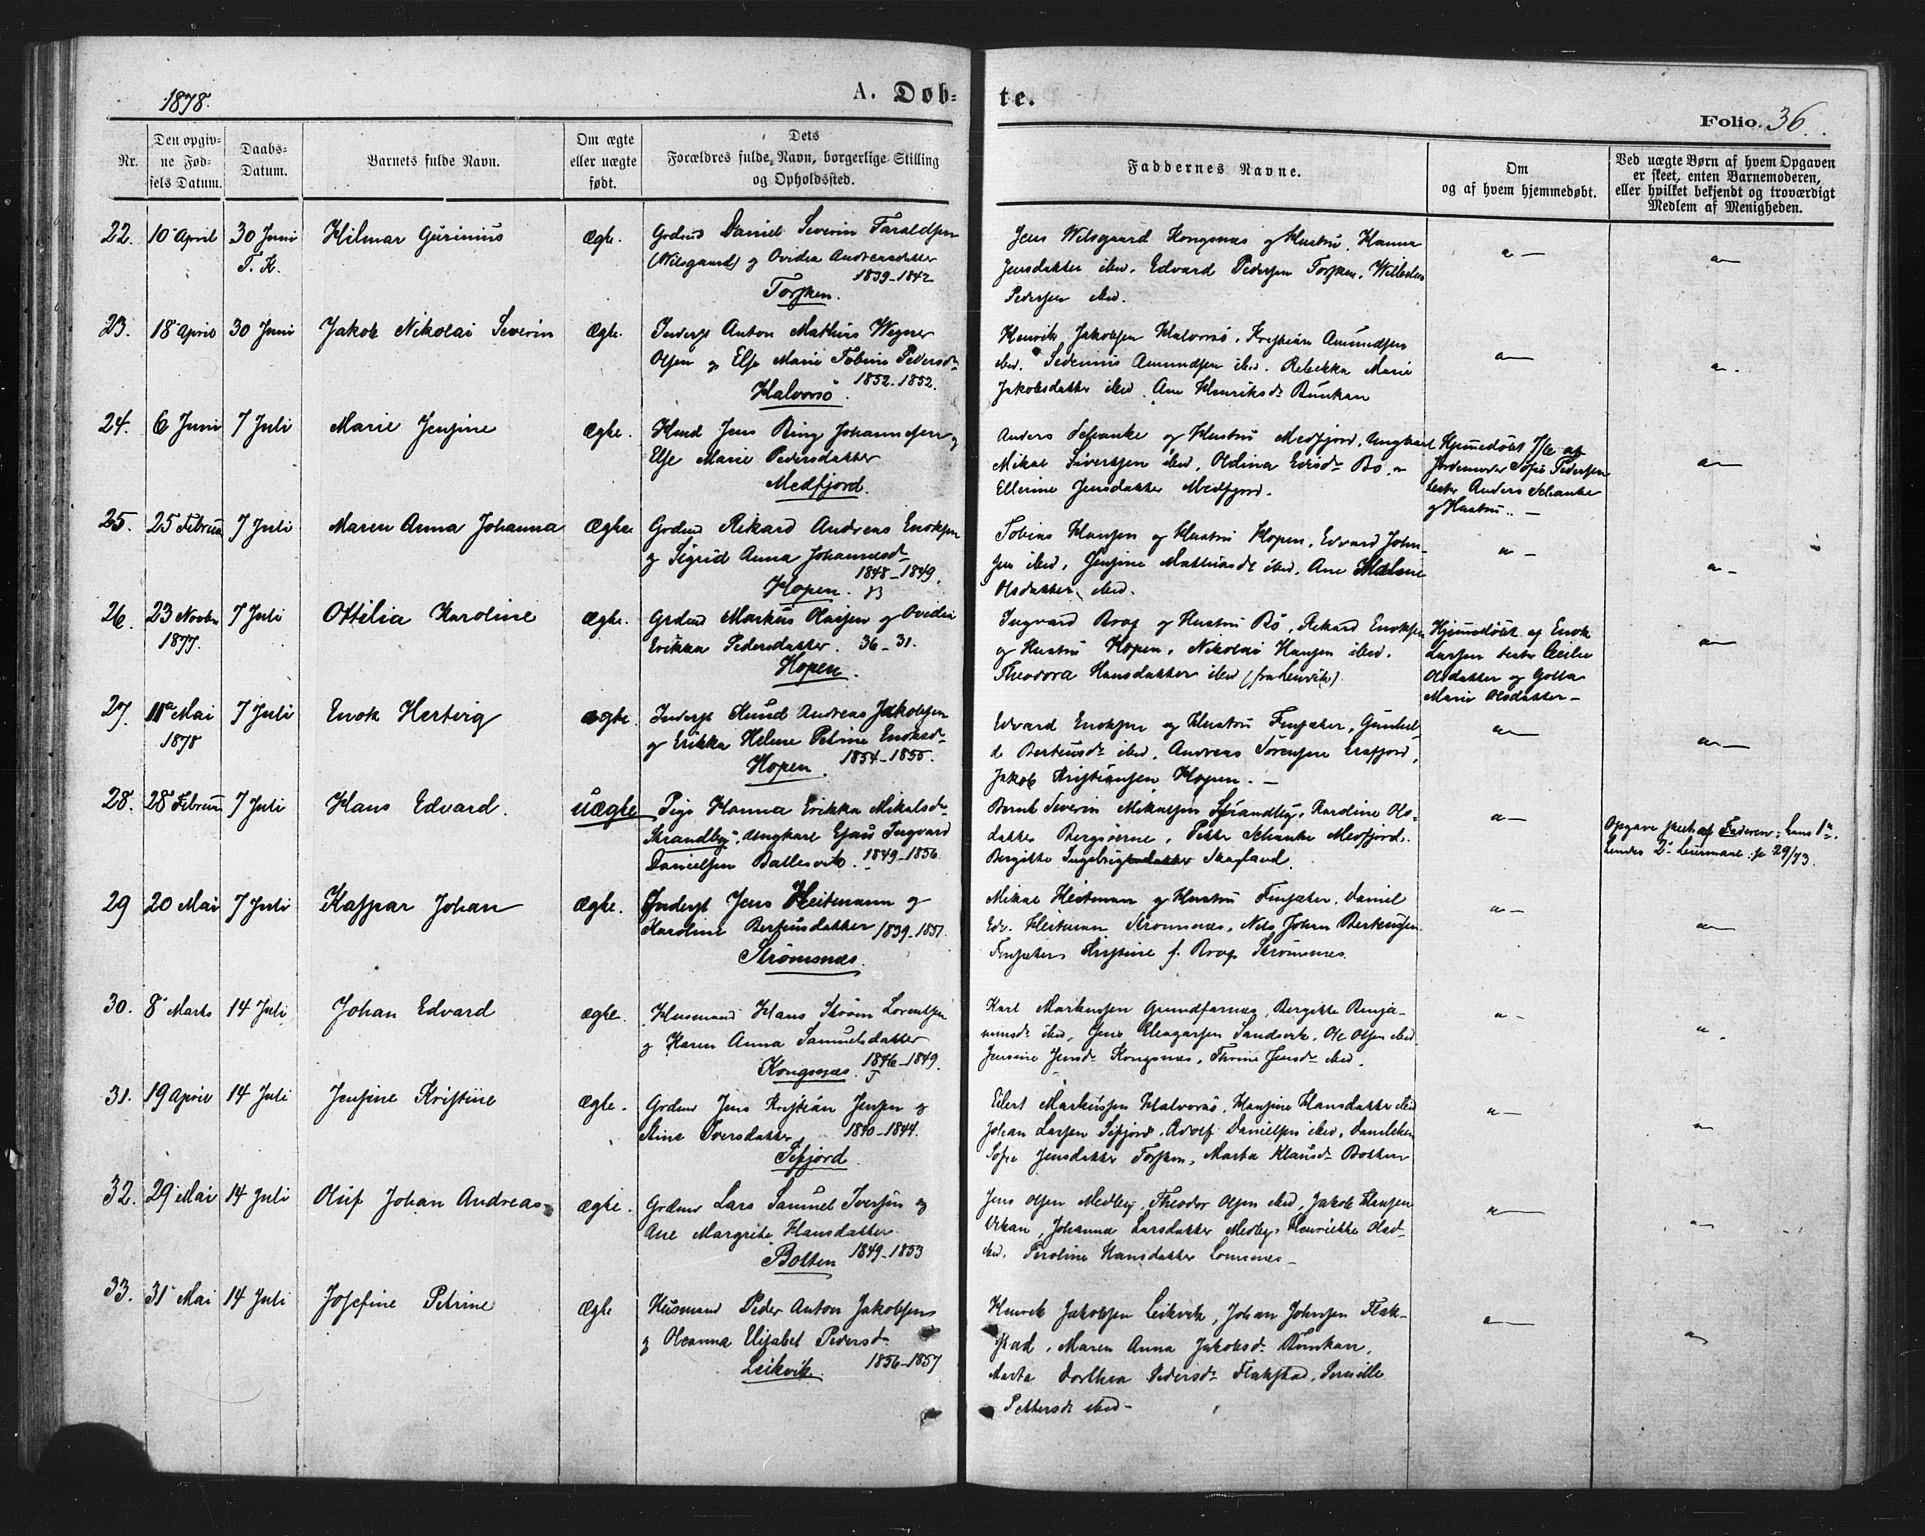 1878.
A. Døb-
te.
Folio. 36.
Nr.
Den opgiv-
ne Fød-
sels Datum.
Daabs-
Datum.
Barnets fulde Navn.
Om ægte
eller uægte
født.
Dets
Forældres fulde Navn, borgerlige Stilling
og Opholdssted.
Faddernes Navne.
Om
og af hvem hjemmedøbt.
Ved uægte Børn af hvem Opgaven
er skeet, enten Barnemoderen,
eller hvilket bekjendt og troværdigt
Medlem af Menigheden.
22. 10 April 30 Juni Hilmar Gurinius Ægte. Grdmd Daniel Severin Faraldsen
T. K. (Wilsgaard) og Ovidia Andreasdatter
1839-1842
Torsken.
Jens Wilsgaard Kongsnæs og Hustru, Hanna
Jensdatter ibid. Edvard Pedersen Torsken,
Pedersen ibid.
23. 18 April 30 Juni Jakob Nikolai Severin Ægte. Inderst Anton Mathias Wegner
Olsen og Else Marie Tobine Pedersd.
1852-1852.
Halvorsö.
Henrik Jakobsen Halvorsö, Kristian Amundsen
ibid. Amundsen ibid. Rebekka Marie
Jakobsdatter ibid. Ane Henriksd. Bunkan
24. 6 Juni 7 Juli Marie Jensine Ægte. Husmd Jens Ring Johannesen og
Else Marie Pedersdatter
Medfjord.
Anders Schanke og Hustru Medfjord, Ungkarl
Mikal Sivertsen ibid, Oldina Bö,
Ellerine Jensdatter Medfjord.
Hjemmedøbt 7/6 af
Jordemoder Sofie Pedersen
testes Anders Schanke
og Hustru. -
25. 25 Februar 7 Juli Maren Anna Johanna Ægte Grdmd Rikard Andreas Enoksen
og Sigrid Anna Johannesd.
1848-1849.
Hopen.
Tobias Hansen og Hustru Hopen, Edvard John-
sen ibid, Jensine Mathiasd. ibid, Ane Malene
Olsdatter, ibid.
26. 23 Novbr 7 Juli Ottilia Karoline Ægte. Grdmd Markus Olaisen og Ovidia
1877. Erikka Pedersdatter. 36-31.
Hopen.
Ingvard Brox og Hustru Bö, Rikard Enoksen
og Hustru Hopen, Nikolai Hansen ibid.
Theodora Hansdatter ibid (fra Lenvik).
Hjemmedøbt af Enok
Larsen testes Cecilie
Olsdatter og Golla
Marie Olsdatter -
27. 11 Mai 7 Juli Enok Hertvig ægte. Inderst Knud Andreas Jakobsen
1878 og Erikka Helene Petrine Enoksd.
Hopen. 1854-1855.
Edvard Enoksen og Hustru Finsæter, Gunhil-
d Berteusd. ibid, Andreas Sörensen Ersfjord,
Jakob Kristiansen Hopen. -
28. 28 Februar 7 Juli Hans Edvard. uægte Pige Hanna Erikka Mikalsd.
Strandby, Ungkarl Ejau Ingvard
Danielsen Ballesvik. 1849-1856.
Bernt Severin Mikalsen Strandby, Karoline Ols-
datter Bergsörne, Petter Schanke Medfjord.
Bergitte Ingebrigtsdatter Skagland.
Opgave skeet af Faderen; hans 1ste
hendes 2. Leiermaal. 29/73.
29 20 Mai 7 Juli Kaspar Johan ægte. Inderst Jens Heitmann og
Karoline Berteusdatter 1839-1851.
Strömsnæs.
Mikal Heitmann og Hustru Finsæter, Daniel
Edv. Heitmann Strömsnæs, Nils Johan Berteusen
Finsæter, Kristine f. Brox Strömsnæs.
30. 8 Marts 14 Juli Johan Edvard ægte. Husmand Hans Ström Lorentsen
og Karen Anna Samuelsdatter
Kongsnæs. 1846-1849.
Karl Markussen Grundfarnæs, Bergitte Benja-
minsd. ibid, Jens Eleasarsen Sandvik, Ole Olsen ibid
Jensine Jensd. Kongsnæs, Thrine Jensd. ibid.
31. 19 April 14 Juli Jensine Kristine ægte. Grdmd Jens Kristian Jensen og
Stine Iversdatter 1840-1844.
Sifjord.
Eilert Markussen Halvorsö, Hansine Hansdatter ibid
Johan Larsen Sifjord, Adolf Danielsen ibid,
Sofie Jensdatter Torsken, Marta Klausd. Botten
32. 29 Mai 14 Juli Oluf Johan Andreas ægte. Grdmd Lars Samuel Iversen og
Ane Margrete Hansdatter
Botten 1849-1853
Jens Olsen Medby, Theodor Olsen ibid, Jakob Hansen
Johanna Larsdatter Medby, Henriette Olsd.
ibid. Peroline Hansdatter Lomsnæs -
33. 31 Mai 14 Juli Josefine Petrine ægte Husmand Peder Anton Jakobsen
og Oleanna Elisabet Pedersd.
Leikvik. 1856-1857
Henrik Jakobsen Leikvik, Johan Johnsen Flak-
stad, Maren Anna Jakobsd. Bunkan,
Marta Dorthea Pedersd. Flakstad, Pernille
Pettersd. ibid -